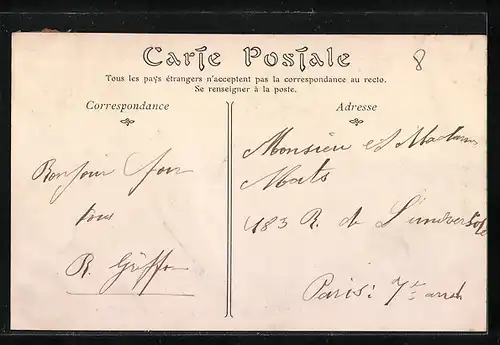 Carte Postale
8
Tous les pays étrangers n'acceptent pas la correspondance au recto.
Se renseigner à la poste.
Correspondance
Adresse
Bonjour pour
tous
R. Griffon
Monsieur et Madame
Mats
183 R. de L'université
Paris: 7e arrdt